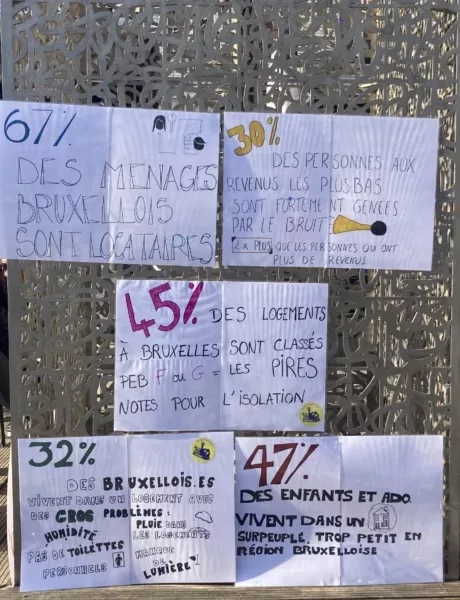 67%
DES MENAGES
BRUXELLOIS
SONT LOCATAIRES
30%
DES PERSONNES AUX
REVENUS LES PLUS BAS
SONT FORTEMENT GENEES
PAR LE BRUIT
2 x PLUS QUE LES PERSONNES QUI ONT
PLUS DE REVENUS
45% DES LOGEMENTS
À BRUXELLES SONT CLASSÉS
PEB F OU G = LES PIRES
NOTES POUR L'ISOLATION
32%
DES BRUXELLOIS.ES
VIVENT DANS UN LOGEMENT AVEC
DES GROS PROBLÈMES :
HUMIDITÉ
PAS DE TOILETTES
PERSONNELS
PLUIE DANS
LES LOGEMENTS
MANQUE
DE
LUMIÈRE
47%
DES ENFANTS ET ADO
VIVENT DANS UN
SURPEUPLÉ, TROP PETIT EN
RÉGION BRUXELLOISE